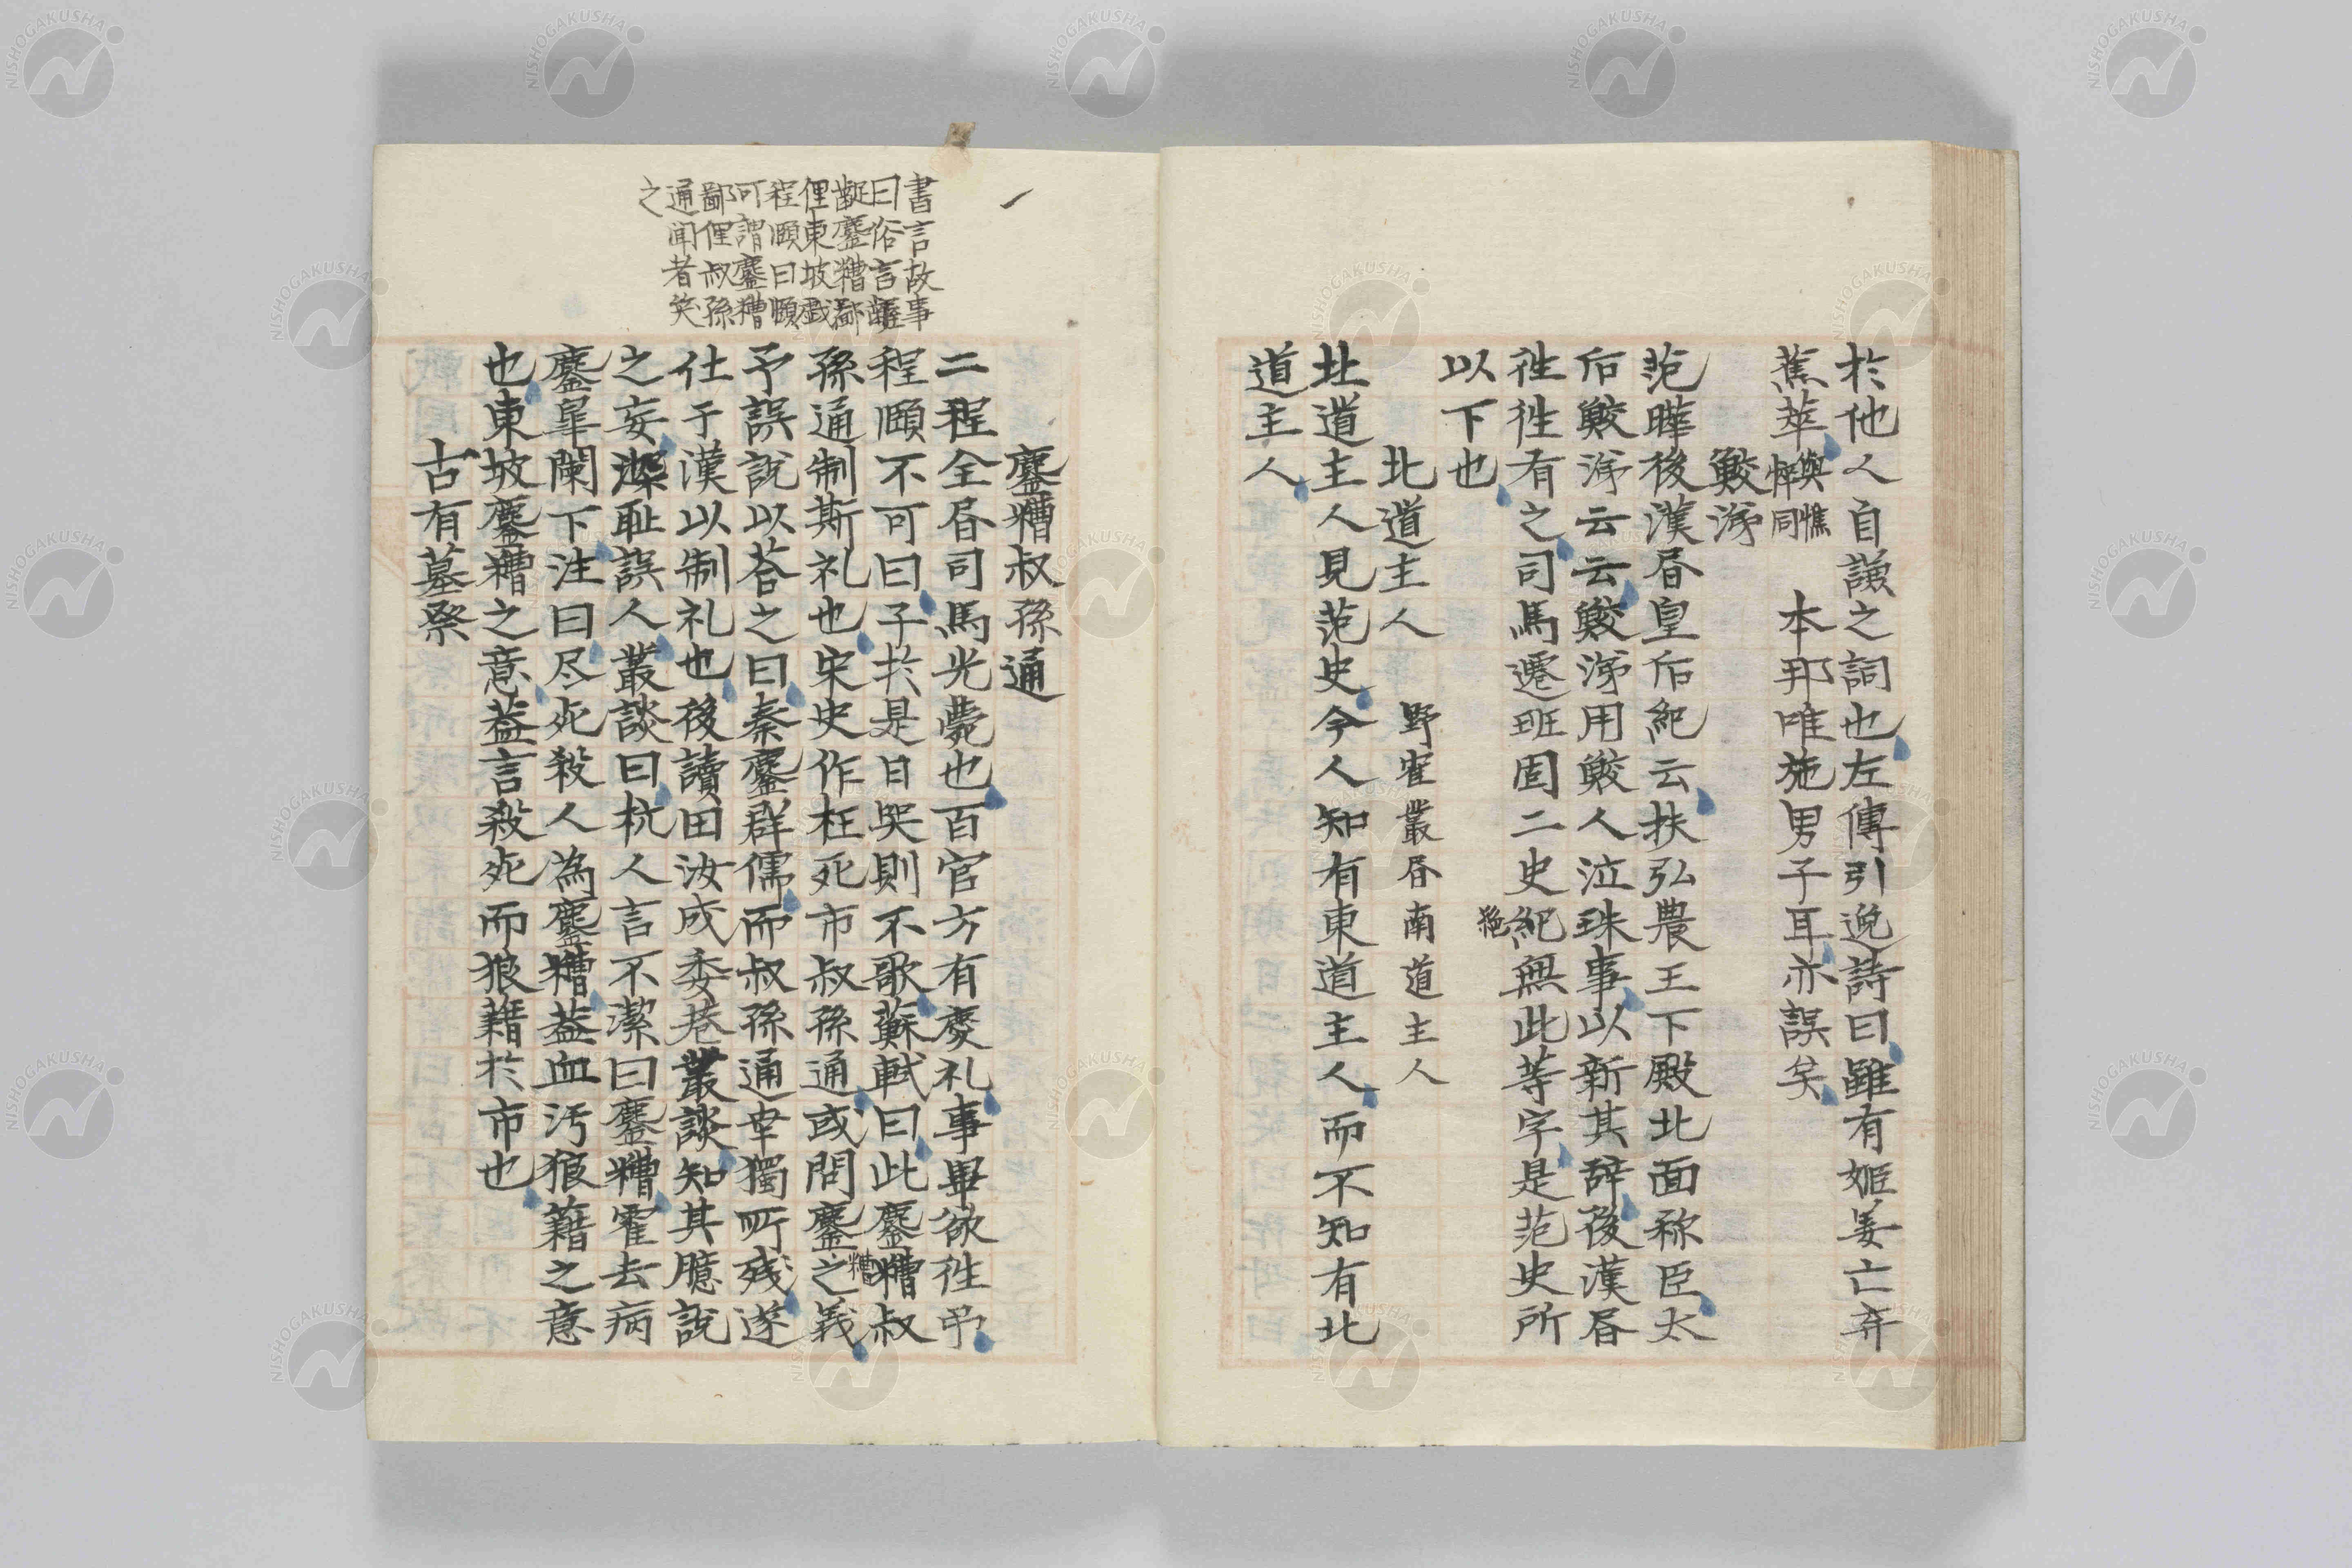 於他人自謙之詞也左傳引逸詩曰雖有姬姜亡弃
蕉萃與憔悴同 本邦唯施男子耳亦誤矣
鮫涕
范曄後漢昏皇后紀云扶弘農王下殿北面称臣太
后鮫涕云云鮫涕用鮫人泣珠事以新其辞後漢昏
徃徃有之司馬遷班固二史紀無此等字是范史所
絶
以下也
北道主人 野客叢昏南道主人
北道主人見范史今人知有東道主人而不知有北
道主人
書言故事
曰俗言齷
齪鏖糟鄙
俚東坡戯
程頤曰頤
可謂鏖糟
鄙俚叔孫
通聞者笑
之
鏖糟叔孫通
二程全昏司馬光薨也百官方有慶礼事畢欲徃弔
程頤不可曰子於是日哭則不歌蘇軾曰此鏖糟叔
孫通制斯礼也宋史作枉死市叔孫通或問鏖糟之義
予誤説以荅之曰秦鏖群儒而叔孫通幸獨所残遂
仕于漢以制礼也後讀田汝成委巷叢談知其臆説
之妄深耻誤人叢談曰杭人言不潔曰鏖糟霍去病
鏖皐闌下注曰尽死殺人為鏖糟葢血汚狼藉之意
也東坡鏖糟之意葢言殺死而狼藉於市也
古有墓祭
NISHOGAKUSHA